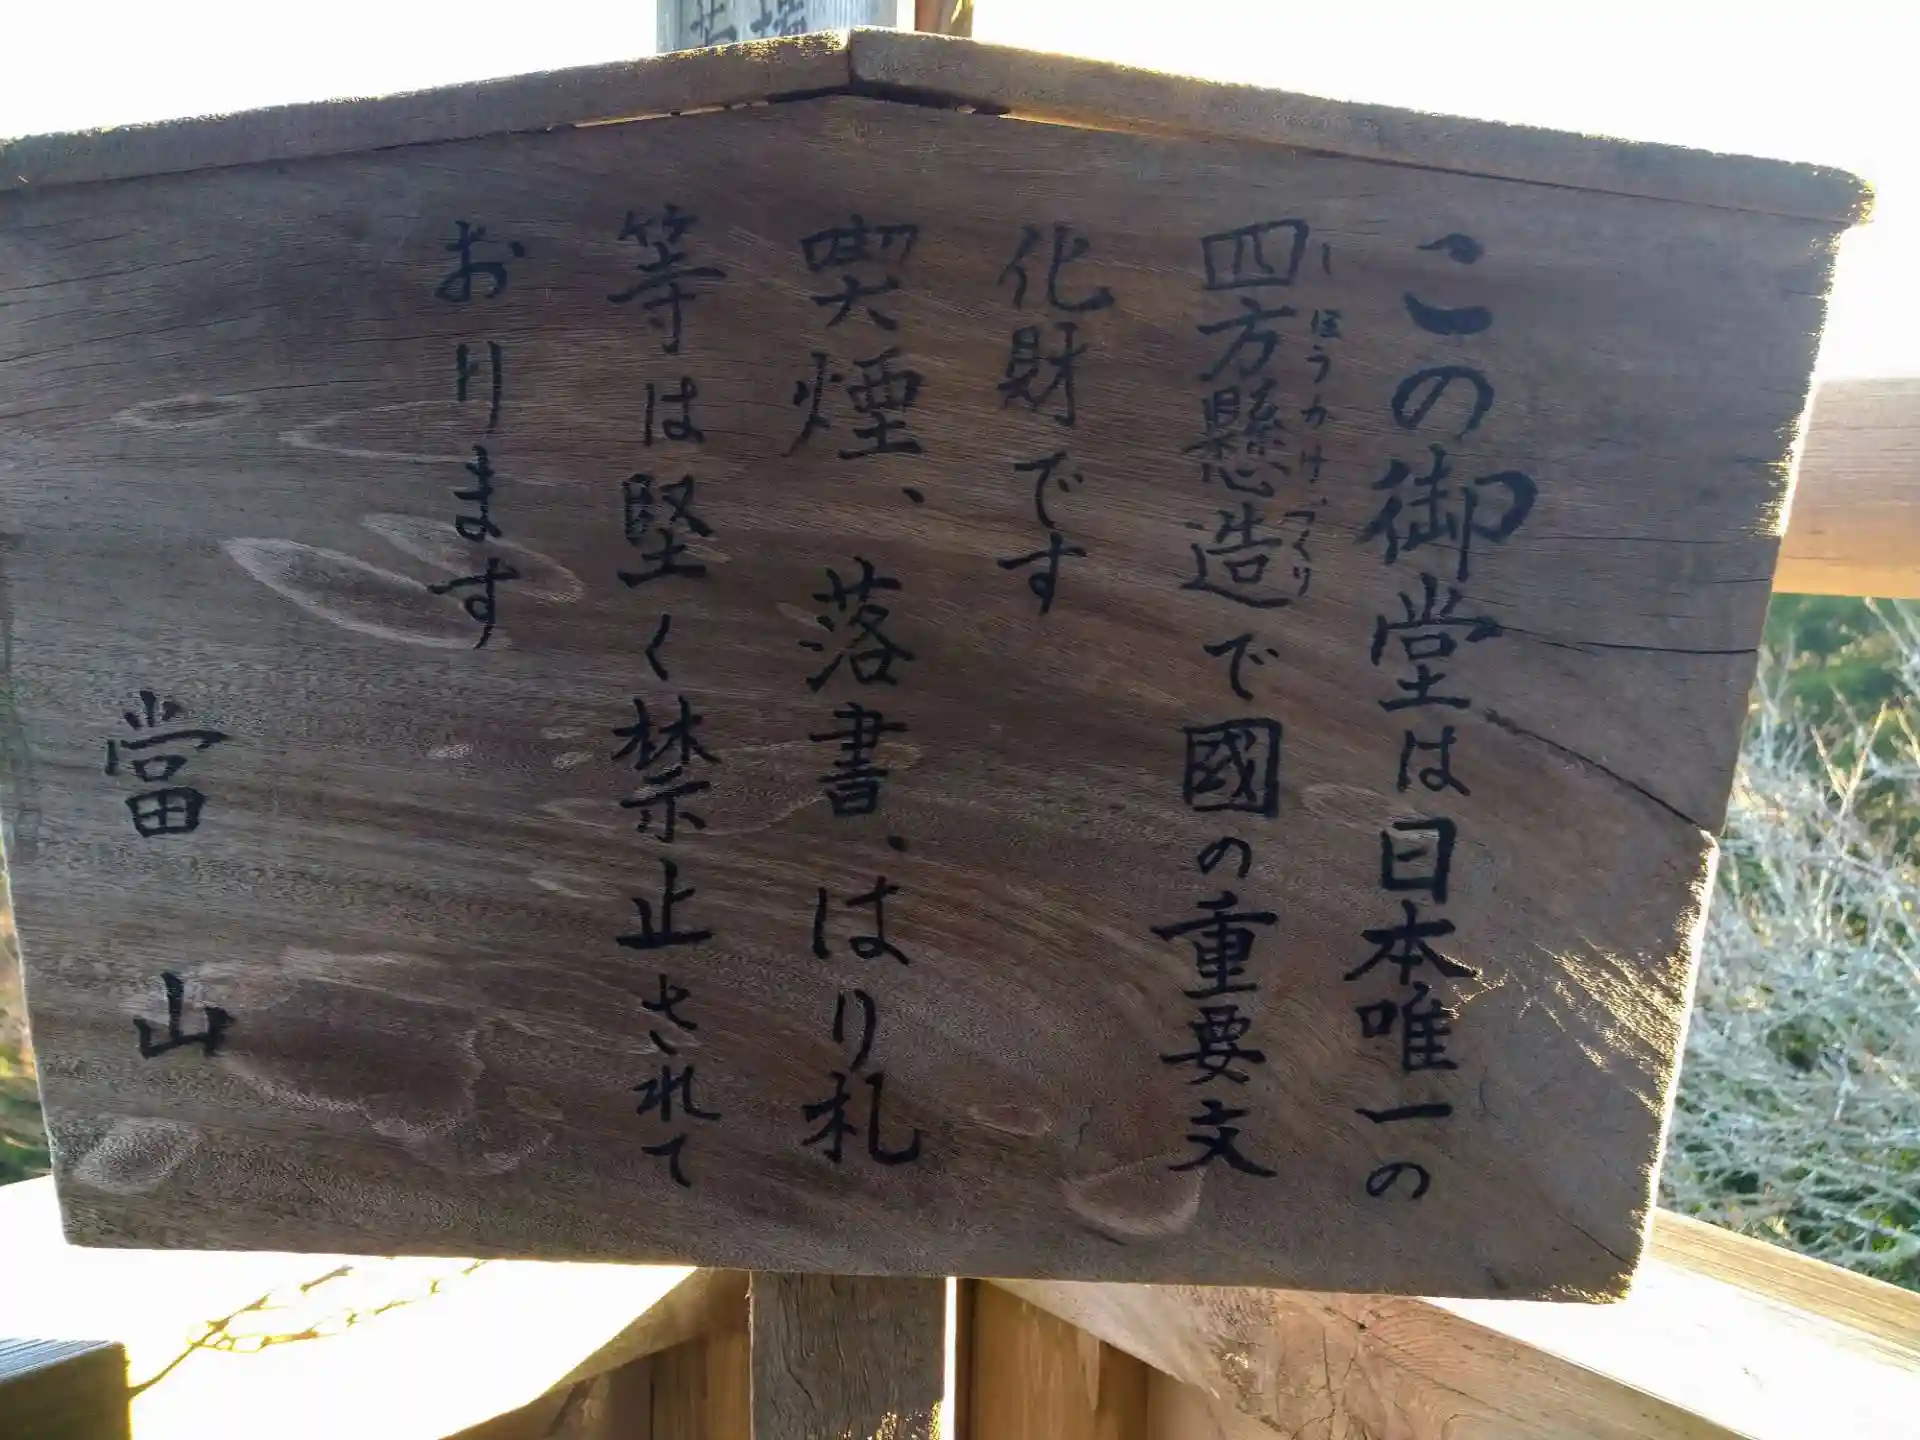 この御堂は日本唯一の
四方懸造で國の重要文
しほうかけづくり
化財です
喫煙、落書、はり札
等は堅く禁止されて
おります
當山